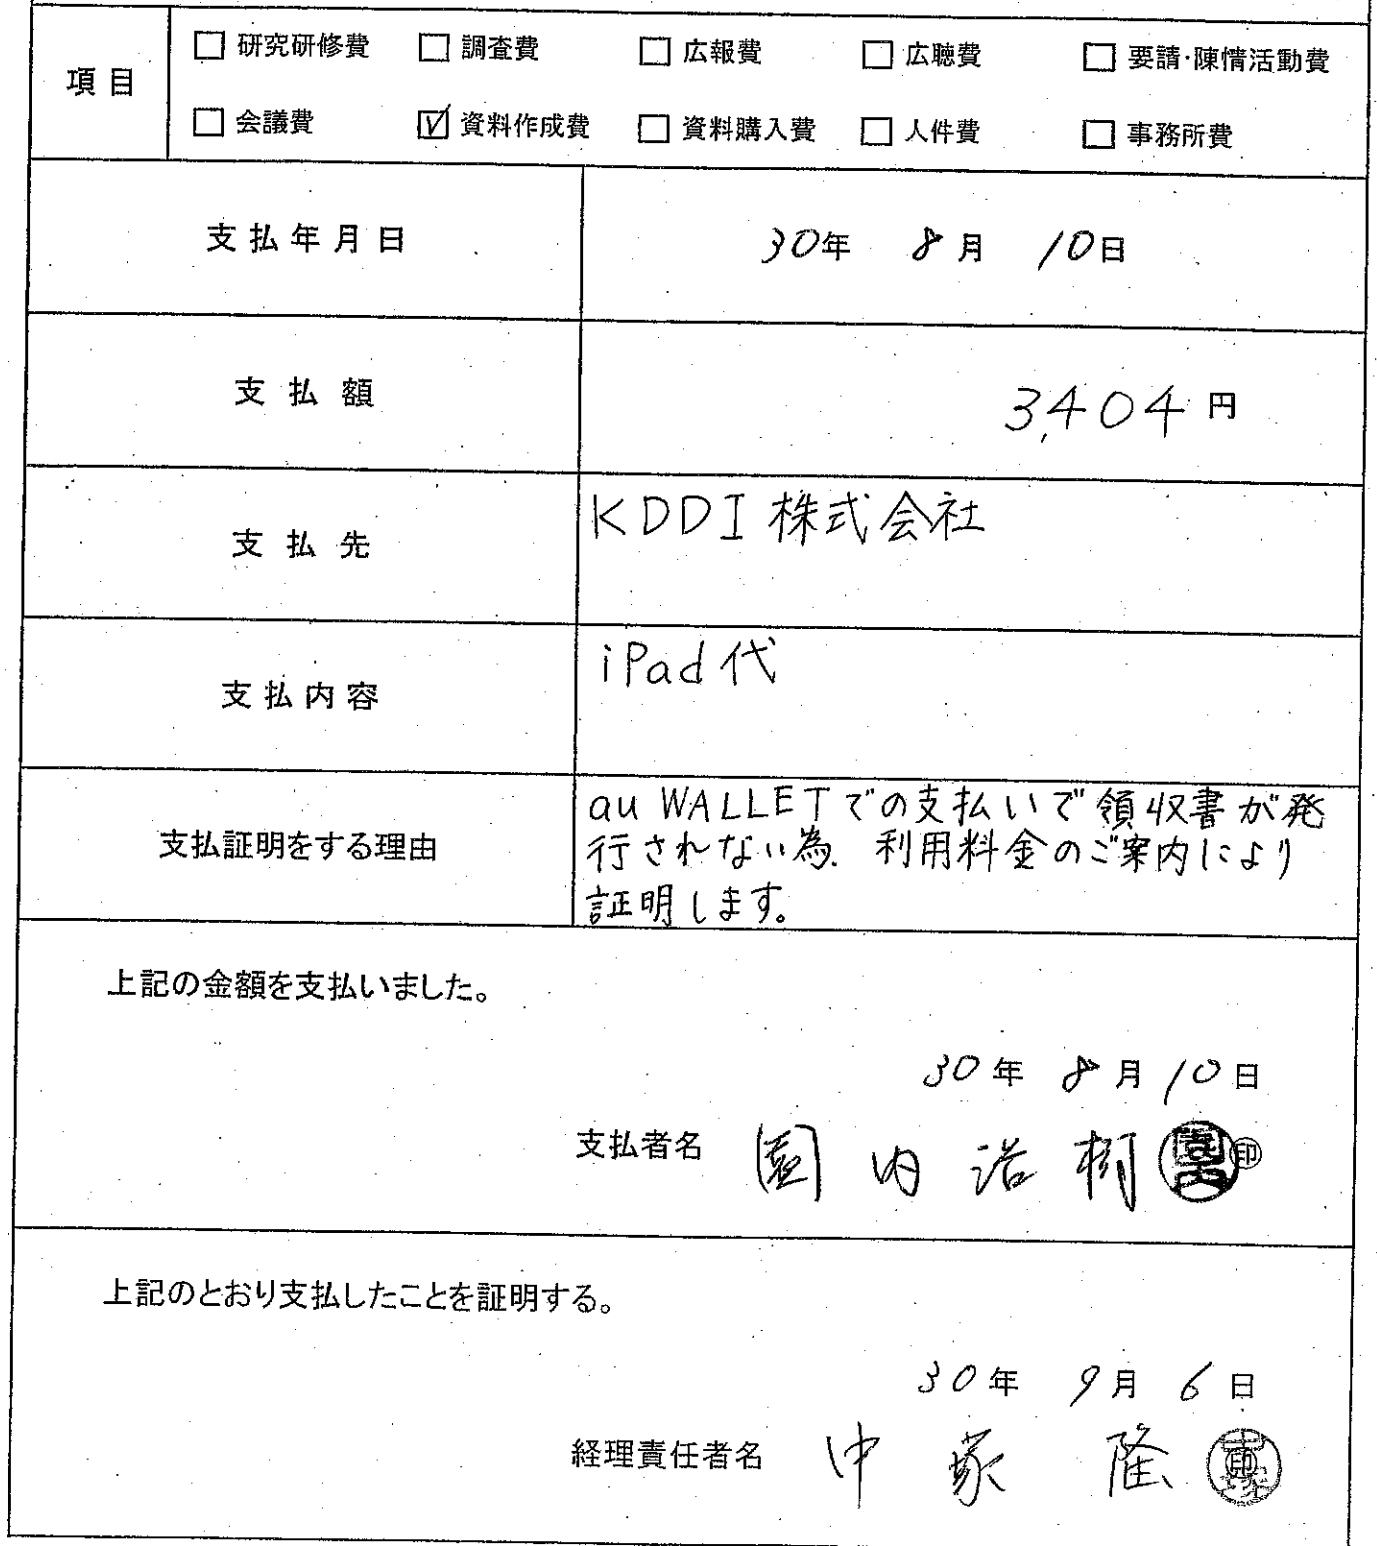 項目
□ 研究研修費 □ 調査費 □ 広報費 □ 広聴費 □ 要請・陳情活動費
□ 会議費 ☑ 資料作成費 □ 資料購入費 □ 人件費 □ 事務所費
支払年月日 30年 8月 10日
支払額 3,404円
支払先 KDDI株式会社
支払内容 iPad代
支払証明をする理由
au WALLETでの支払いで領収書が発
行されない為、利用料金のご案内により
証明します。
上記の金額を支払いました。
30年 8月 10日
支払者名 園内浩樹 印
上記のとおり支払したことを証明する。
30年 9月 6日
経理責任者名 中塚 隆 印